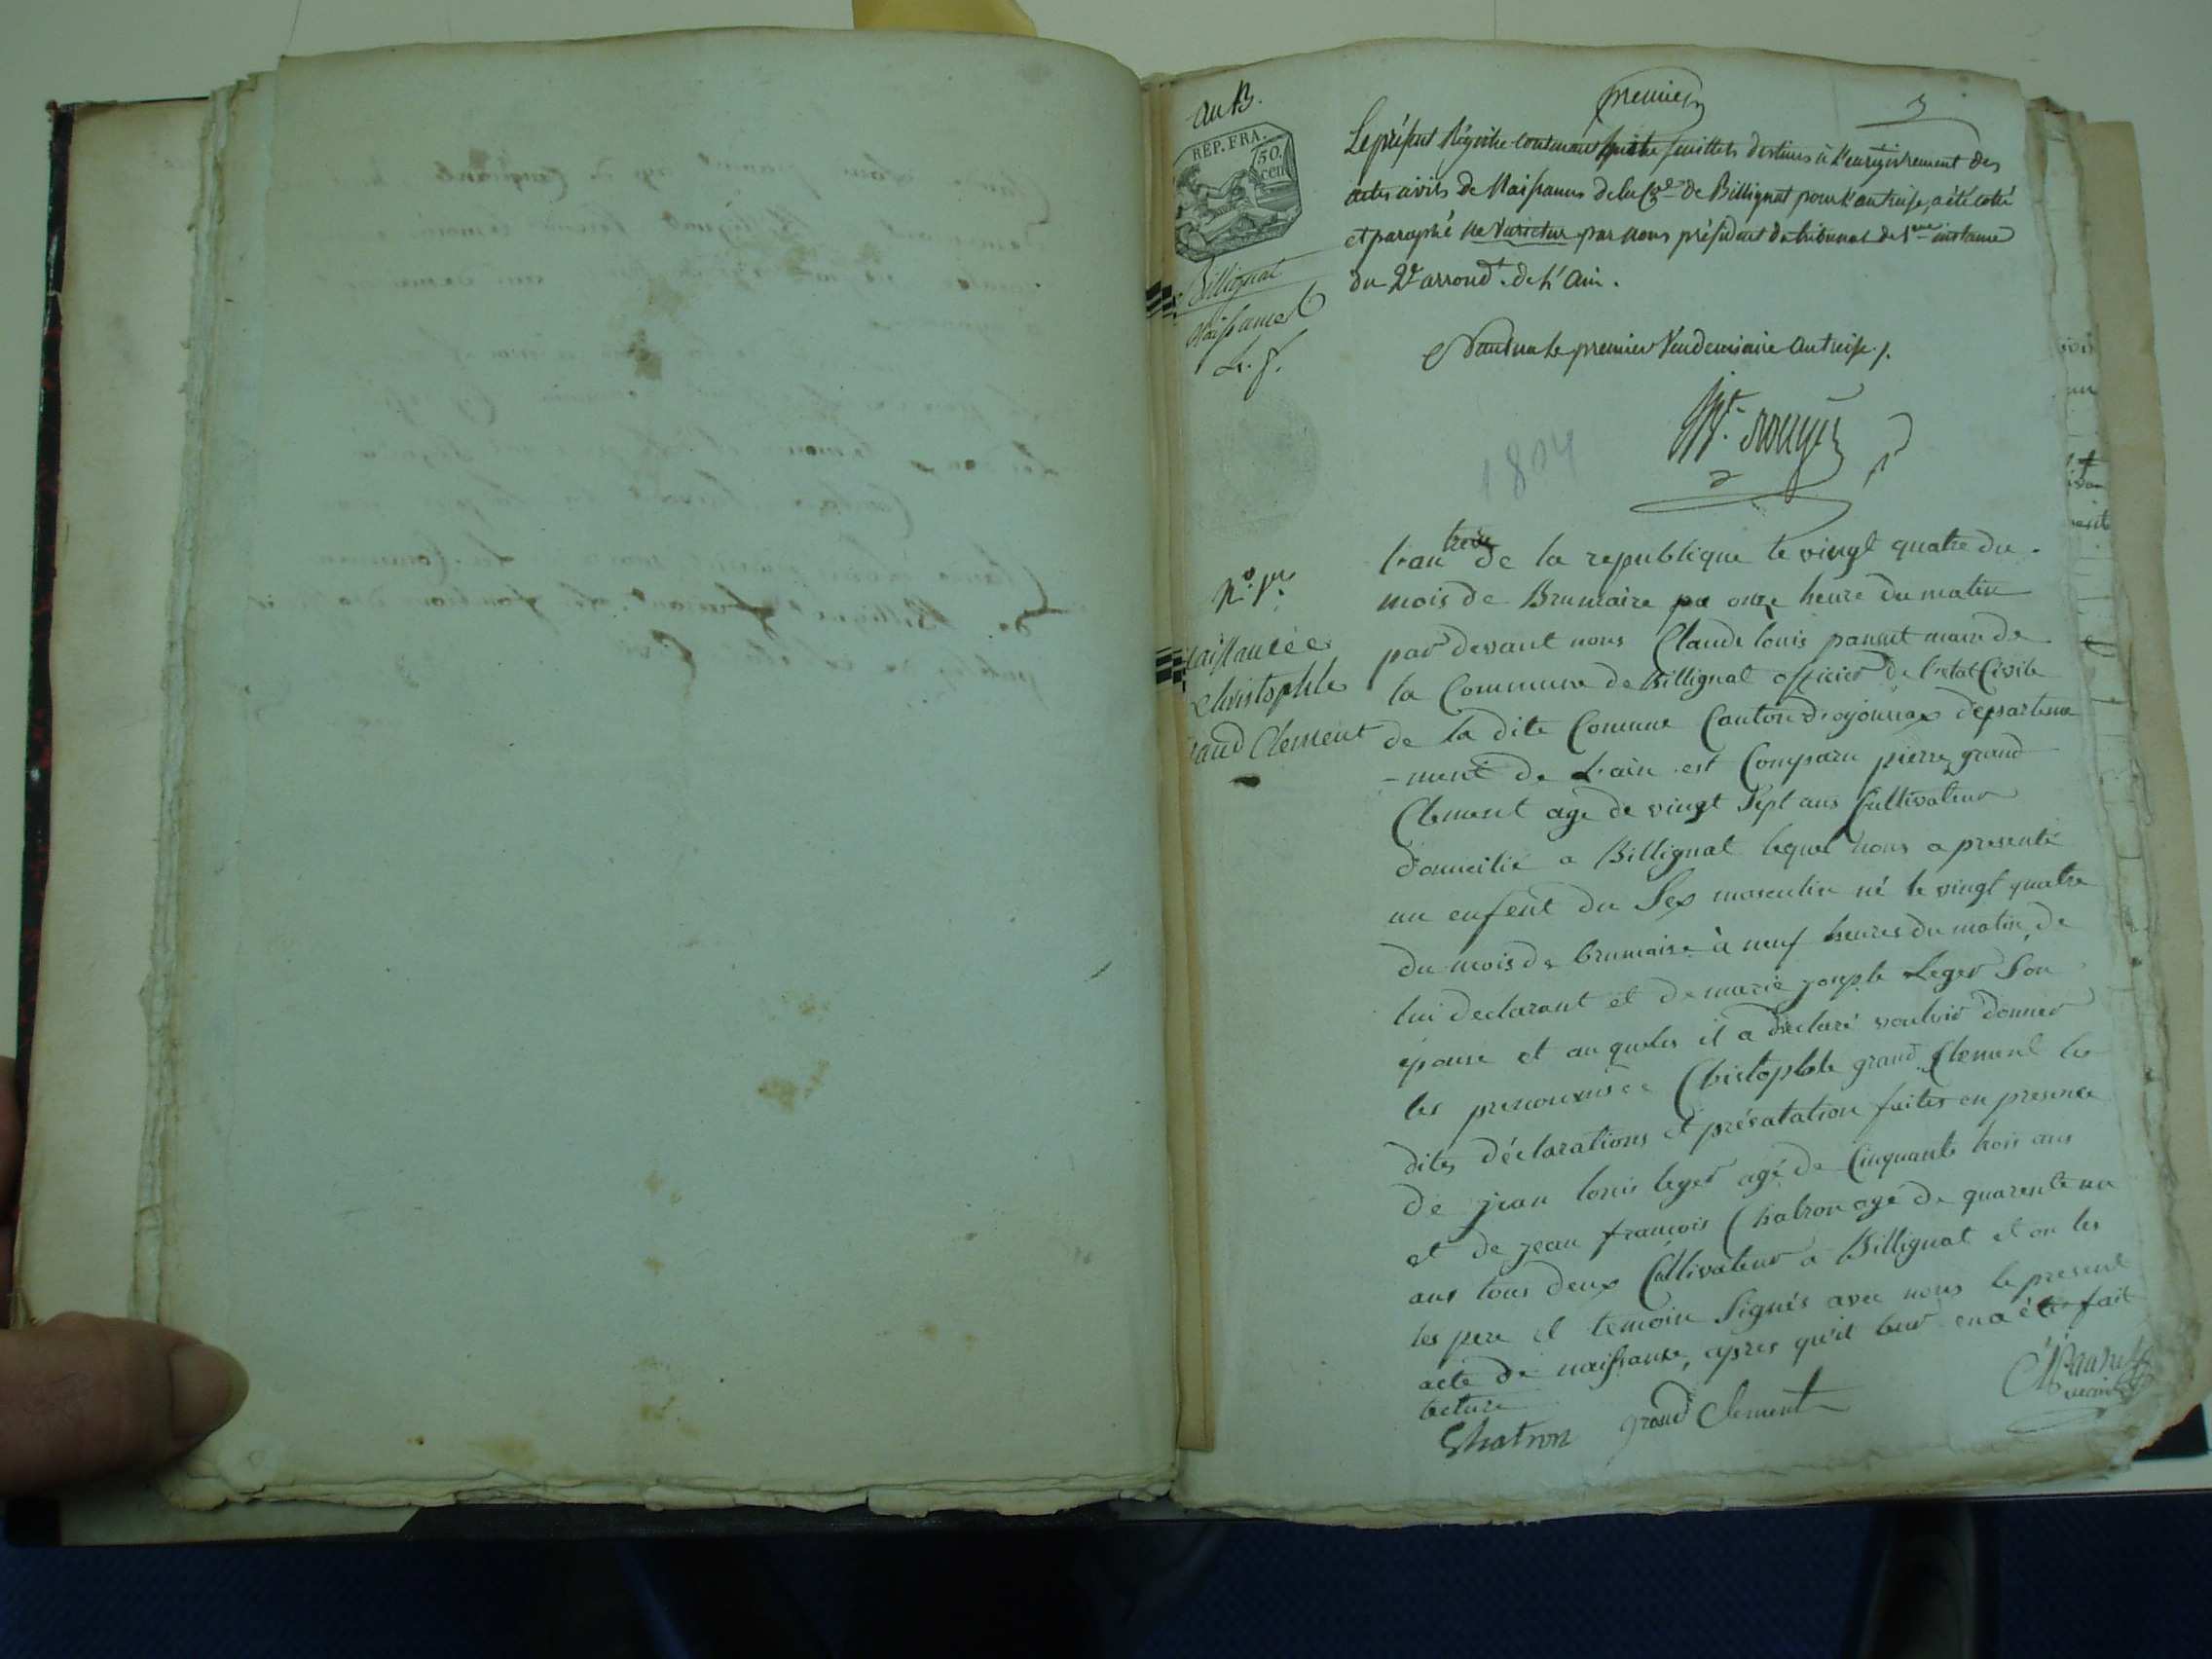 an 13.
REP. FRA.
50.
cen
Billignat
Naissances
L. J.
premier
Le présent Régistre contenant feuillets destinés à l'enregistrement des
actes civils de Naissances de la Cne de Billignat pour l'an treise, a été cotté
et paraphé ne varietur par nous président du tribunal de 1ere instance
du 2e arrondt. de l'Ain.
Nantua le premier Vendemiaire an treise.
1804
N.o 1er
naissancee
christophle
grand Clement
l'an treize de la republique le vingt quatre du
mois de Brumaire onze heure du matin
par devant nous Claude louis pansut maire de
la Commune de Billignat officier de l'etat Civile
de la dite Comune Canton d'oyonnax departeme
-ment de L'ain est Comparu pierre grand
Clement age de vingt Sept ans Cultivateur
domicilié a Billignat lequel nous a presenté
un enfent du Sex masculin né le vingt quatre
du mois de brumaire à neuf heures du matin, de
lui declarant et de marie josephe Leger Son
épouse et au queles il a declaré vouloir donner
les Christophle grand Clement les
dites déclarations et présatation faites en presence
de jean louis leger agé de Cinquante trois ans
et de jean françois Chatron agé de quarente un
ans tous deux Cultivateur a Billignat et on les
les pere et temoin Signés avec nous le present
acte de naissanse, apres qu'il leur en a été fait
lecture
Chatron grand Clement